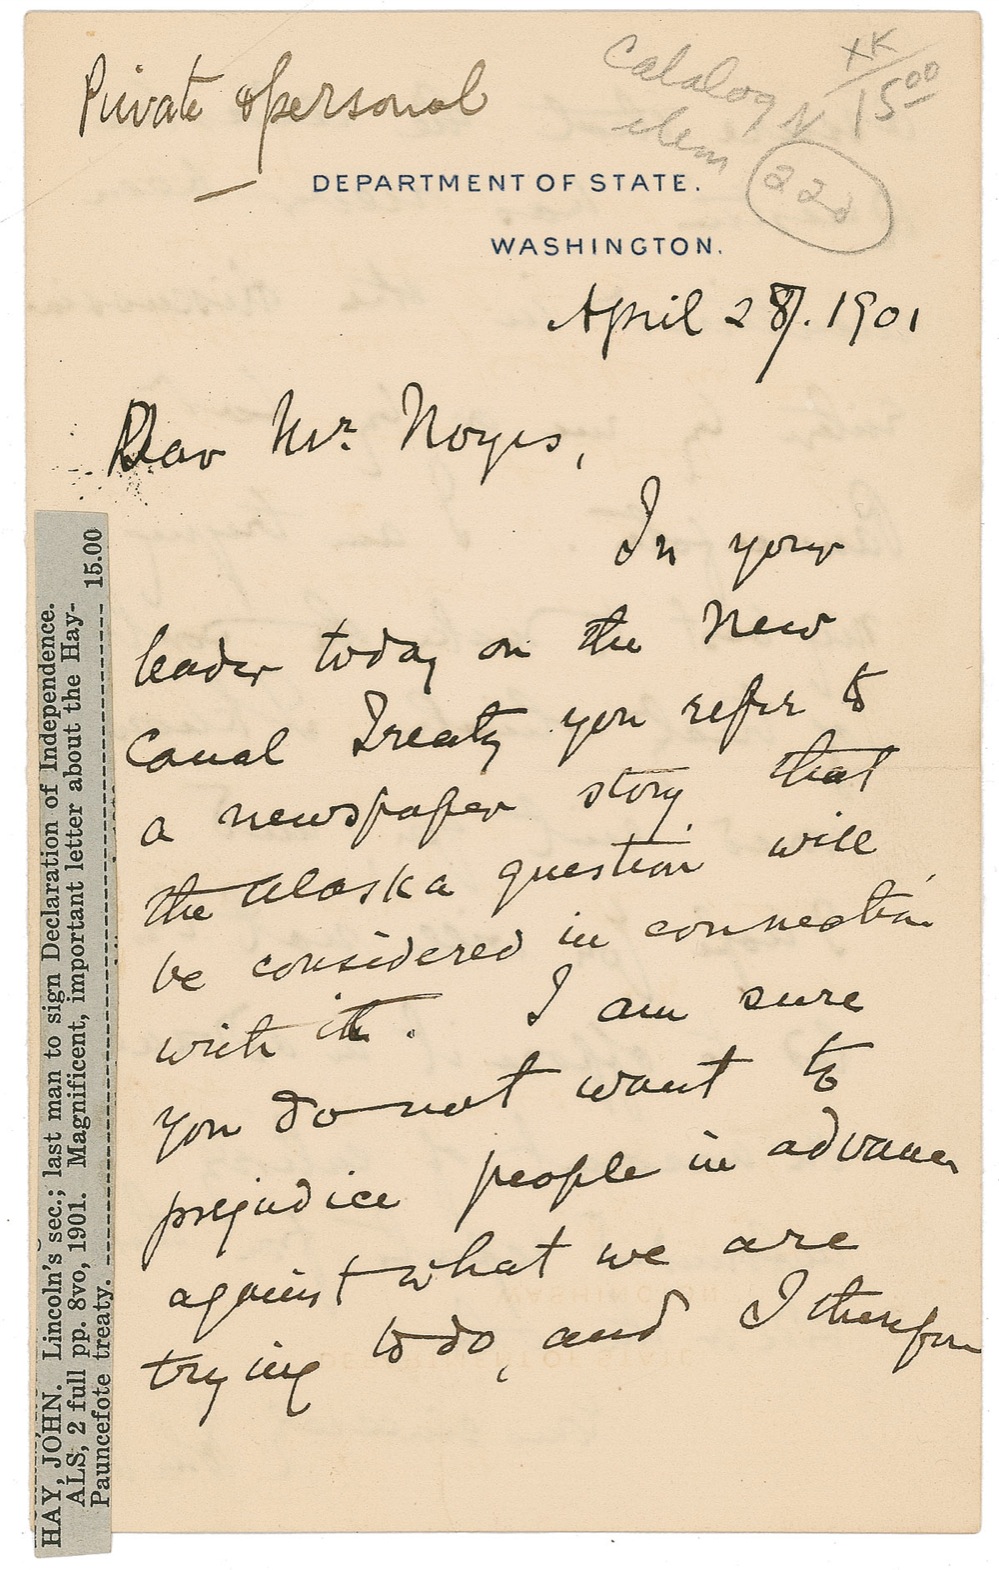 Private & personal
Catalog N
item
XK
15 00
228
DEPARTMENT OF STATE.
WASHINGTON.
April 28/. 1901
Dear Mr. Noyes,
In your
leader today on the New
Canal Treaty you refer to
a newspaper story that
the Alaska question will
be considered in connection
with it. I am sure
you do not want to
prejudice people in advance
against what we are
trying to do, and I therefore
HAY, JOHN. Lincoln's sec.; last man to sign Declaration of Independence.
ALS, 2 full pp. 8vo, 1901. Magnificent, important letter about the Hay-
Pauncefote treaty. 15.00